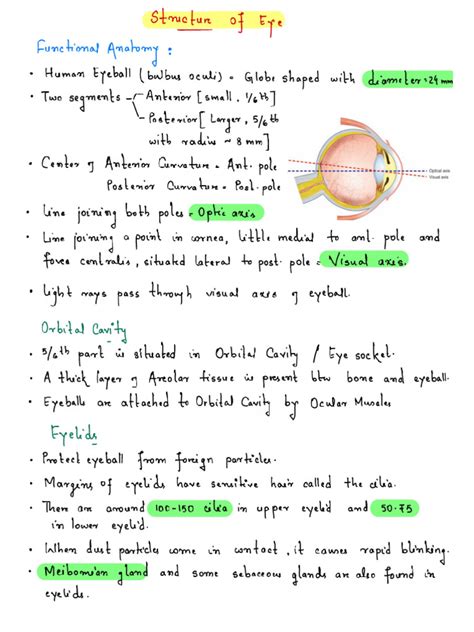 Structure of Eye
Functional Anatomy :
• Human Eyeball (bulbus oculi) = Globe shaped with diameter = 24 mm
• Two segments - Anterior [small, 1/6 th]
- Posterior [Larger, 5/6 th
with radius ~ 8 mm]
• Center of Anterior Curvature = Ant. pole
Posterior Curvature = Post. pole
Optical axis
Visual axis
• Line joining both poles = Optic axis
• Line joining a point in cornea, little medial to ant. pole and
fovea centralis, situated lateral to post. pole = Visual axis.
• Light rays pass through visual axis of eyeball.
Orbital Cavity
• 5/6 th part is situated in Orbital Cavity / Eye socket.
• A thick layer of Areolar tissue is present btw bone and eyeball.
• Eyeballs are attached to Orbital Cavity by Ocular Muscles
Eyelids
• Protect eyeball from foreign particles.
• Margins of eyelids have sensitive hair called the cilia.
• There are around 100-150 cilia in upper eyelid and 50-75
in lower eyelid.
• When dust particles come in contact, it causes rapid blinking.
• Meibomian gland and some sebaceous glands are also found in
eyelids.